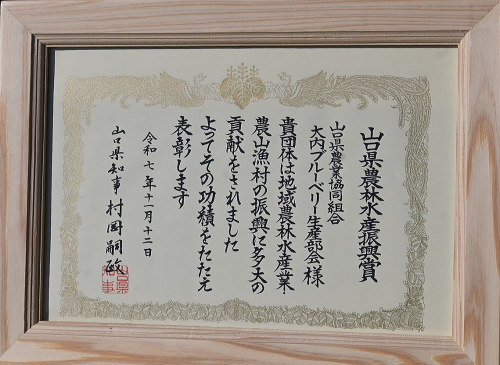 山口県農林水産振興賞
山口県農業協同組合
大内ブルーベリー生産部会 様
貴団体は地域農林水産業・
農山漁村の振興に多大の
貢献をされました
よってその功績をたたえ
表彰します
令和七年十一月十二日
山口県知事 村岡嗣政